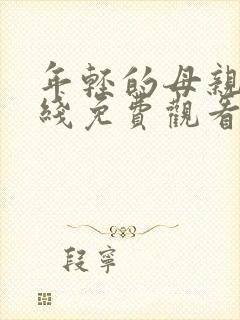 年輕的母親
綫免費觀看
段寧